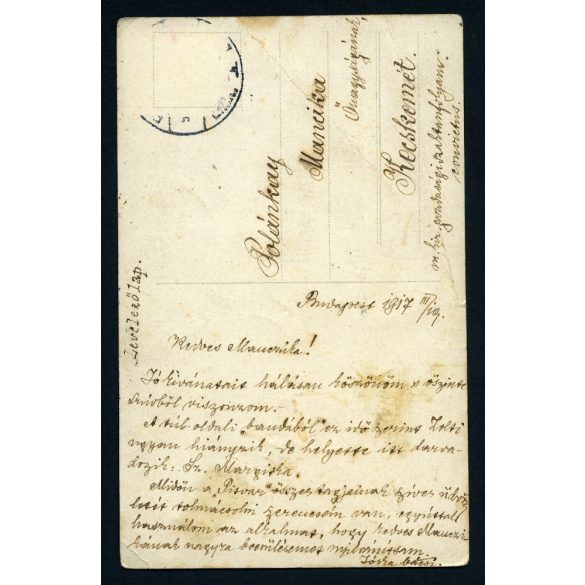 Levelezőlap.
Polánkay
Mancika
Őnagyságának
Kecskemét.
m. kir. gazdasági szaktanfolyam
convictus.
Budapest 1917 III/19.
Kedves Manczika!
Jó kivánatait hálásan köszönöm s őszinte
szívből viszonzom.-
A túl oldali "bandából" ez idő szerint Zolti
ugyan hiányzik, de helyette itt darva-
dozik: Sz. Margitka.
Midőn a "Pitvar" összes tagjainak szíves üdvöz-
letét tolmácsolni szerencsém van, egyúttal
használom az alkalmat, hogy kedves Manczi-
kának nagyra becsülésemet nyilvánítsam.
Jóska bácsi.